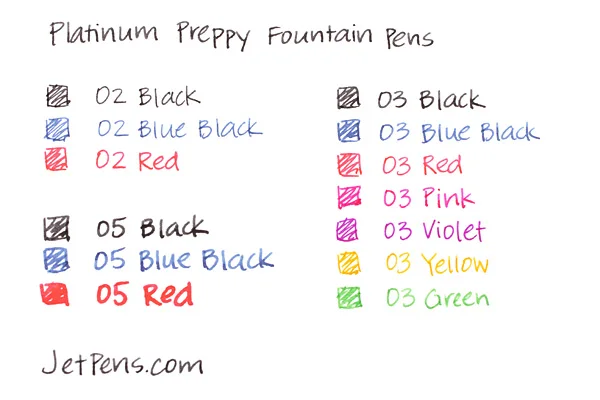 Platinum Preppy Fountain Pens
02 Black
02 Blue Black
02 Red
05 Black
05 Blue Black
05 Red
03 Black
03 Blue Black
03 Red
03 Pink
03 Violet
03 Yellow
03 Green
JetPens.com